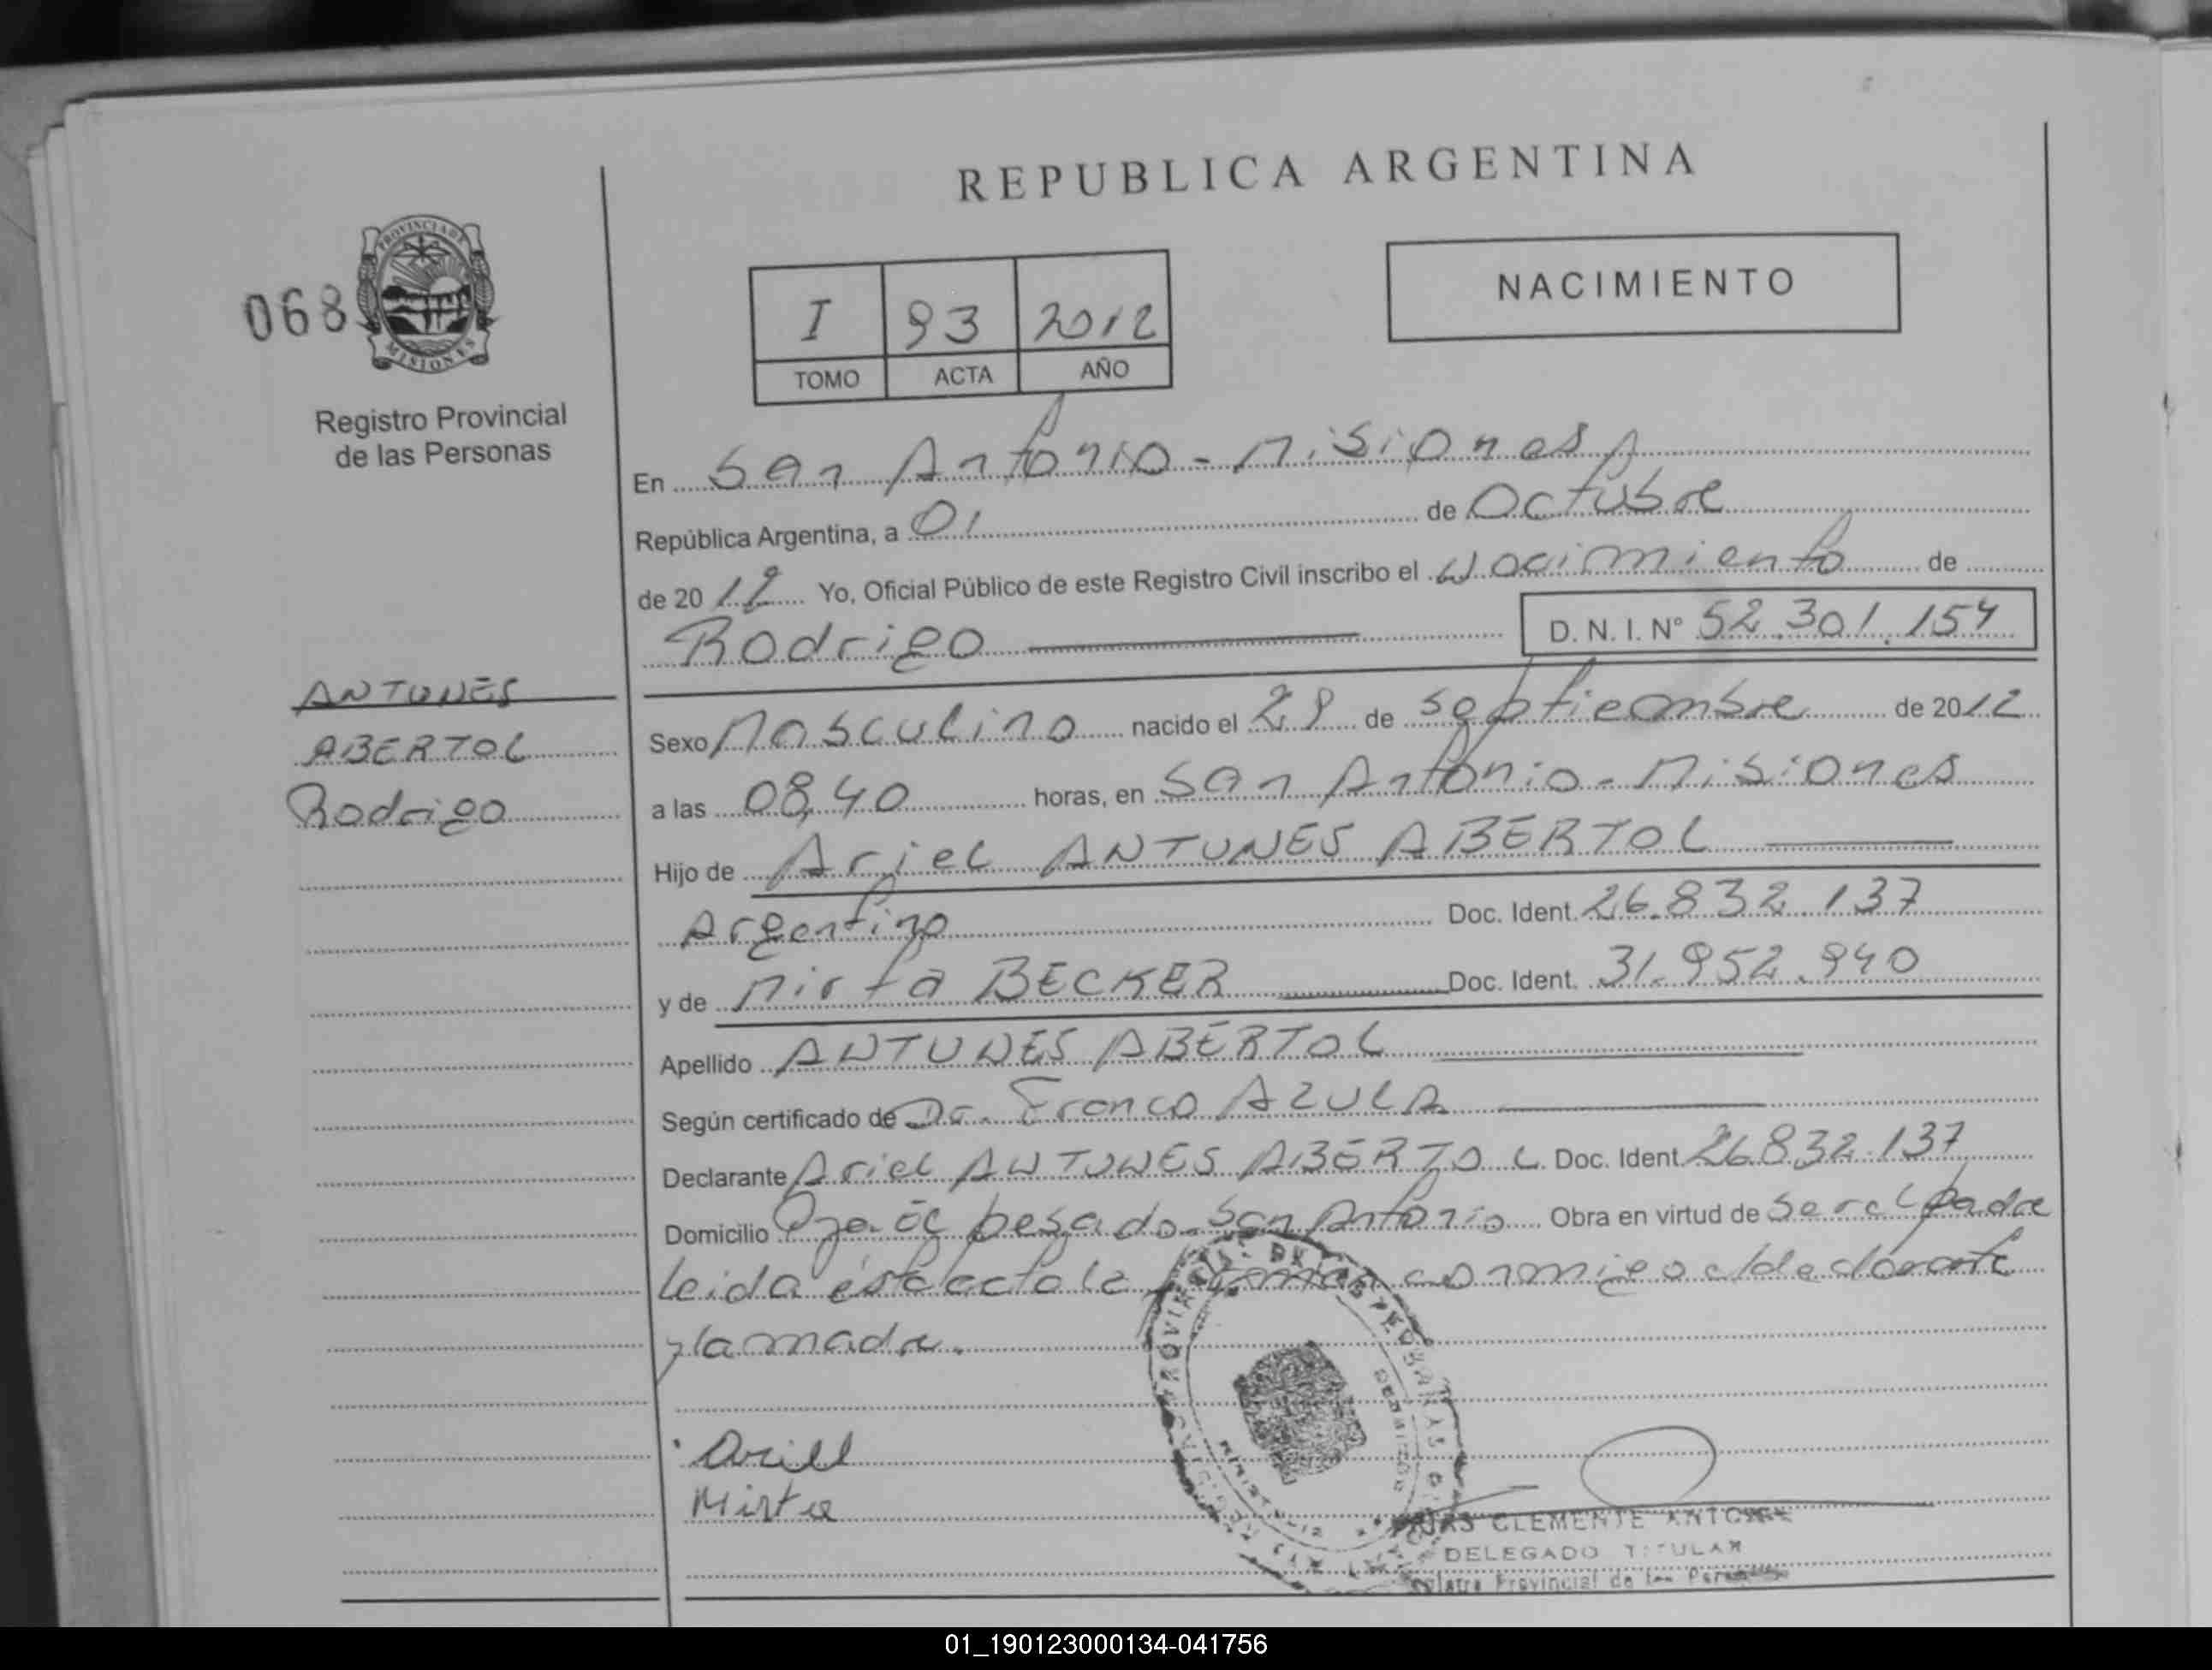 REPUBLICA ARGENTINA
068
PROVINCIA DE
MISIONES
Registro Provincial
de las Personas
NACIMIENTO
I 93 2012
TOMO ACTA AÑO
En San Antonio - Misiones
República Argentina, a 01 de Octubre
de 2012 Yo, Oficial Público de este Registro Civil inscribo el Nacimiento de
Rodrigo D. N. I. N° 52.301.154
ANTUNES
ABERTOL
Rodrigo
Sexo Masculino nacido el 29 de septiembre de 2012
a las 08,40 horas, en San Antonio - Misiones
Hijo de Ariel ANTUNES ABERTOL
Argentino Doc. Ident. 26.832.137
y de Mirta BECKER Doc. Ident. 31.952.940
Apellido ANTUNES ABERTOL
Según certificado de Dr. Franco AZULA
Declarante Ariel ANTUNES ABERTOL Doc. Ident. 26.832.137
Domicilio Pje. El pesado San Antonio Obra en virtud de Ser el padre
leida esta acta la firman conmigo el declarante
y la madre.
Ariel
Mirta
CLEMENTE
DELEGADO TITULAR
Provincial de las
01_190123000134-041756